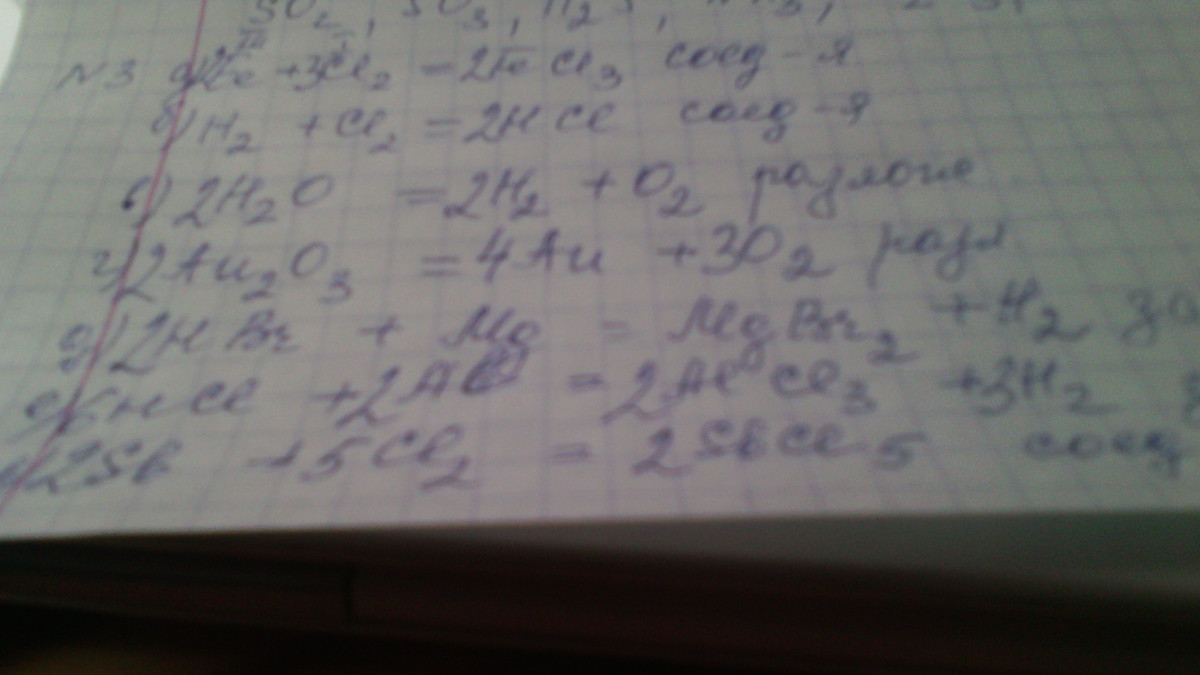 SO₂, SO₃, H₂S,
N3 а) 2Fe + 3Cl₂ = 2FeCl₃ соед-я
б) H₂ + Cl₂ = 2HCl соед-я
в) 2H₂O = 2H₂ + O₂ разлож
г) 2Au₂O₃ = 4Au + 3O₂ разл
д) 2HBr + Mg = MgBr₂ + H₂ за
е) 6HCl + 2Al = 2AlCl₃ + 3H₂ з
2Sb + 5Cl₂ = 2SbCl5 соед